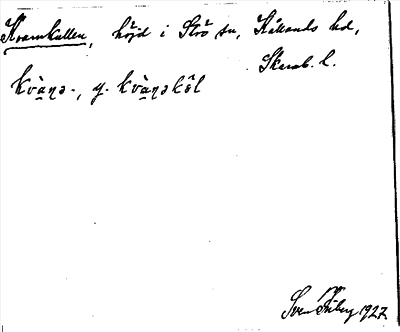 Kvarnkullen, höjd i Strö sn, Kållands hd,
Skarab. l.
kvàṉə-, y. kvàṉəkȯ̂l
Sven Friberg 1927